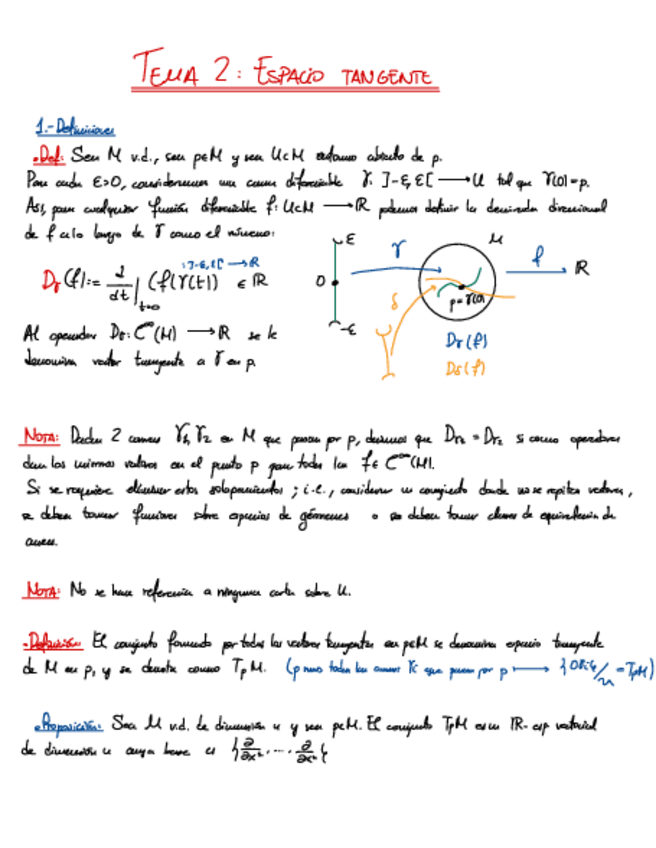 TEMA 2: ESPACIO TANGENTE
1.- Definiciones
• Def: Sea M v.d., sea p∈M y sea U⊂M entorno abierto de p.
Para cada ε>0, consideremos una curva diferenciable γ: ]-ε,ε[ ⟶ U tal que γ(0)=p.
Así, para cualquier función diferenciable f: U⊂M ⟶ ℝ podemos definir la derivada direccional
de f a lo largo de γ como el número:
: ]-ε,ε[ ⟶ ℝ
Dγ(f):= d/dt |t=0 (f(γ(t)) ∈ ℝ
Al operador Dγ: C^∞(M) ⟶ ℝ se le
denomina vector tangente a γ en p.
ε γ M f ℝ
0 δ p=γ(0)
-ε Dγ(f)
Dδ(f)
NOTA: Dadas 2 curvas γ1, γ2 en M que pasan por p, diremos que Dγ1 = Dγ2 si como operadores
dan los mismos valores en el punto p para todas las f∈ C^∞(M).
Si se requiere eliminar estos solapamientos; i.e., considerar un conjunto donde no se repitan vectores,
se deben tomar funciones sobre espacios de gérmenes o se deben tomar clases de equivalencia de
curvas.
NOTA: No se hace referencia a ninguna carta sobre U.
• Definición: El conjunto formado por todos los vectores tangentes en p∈M se denomina espacio tangente
de M en p, y se denota como TpM. (p para todas las curvas γi que pasan por p ⟼ {Dγi}/~ = TpM)
• Proposición: Sea M v.d. de dimensión n y sea p∈M. El conjunto TpM es un ℝ-esp vectorial
de dimensión n cuya base es {∂/∂x¹, ..., ∂/∂xⁿ}